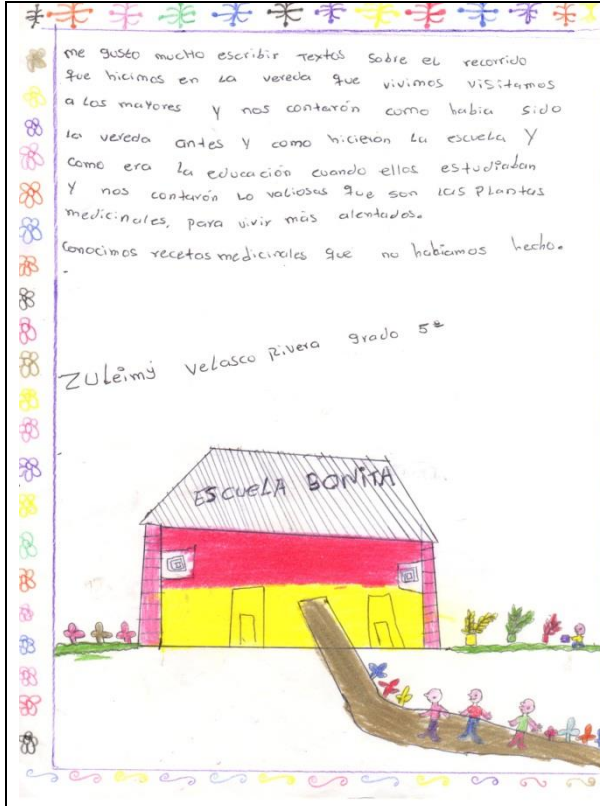 me gusto mucho escribir textos sobre el recorrido
que hicimos en la vereda que vivimos visitamos
a los mayores y nos contarón como habia sido
la vereda antes y como hicierón la escuela y
como era la educación cuando ellos estudiaban
y nos contarón lo valiosas que son las plantas
medicinales, para vivir más alentados.
conocimos recetas medicinales que no habiamos hecho.
Zuleimy Velasco Rivera grado 5º
ESCUELA BONITA